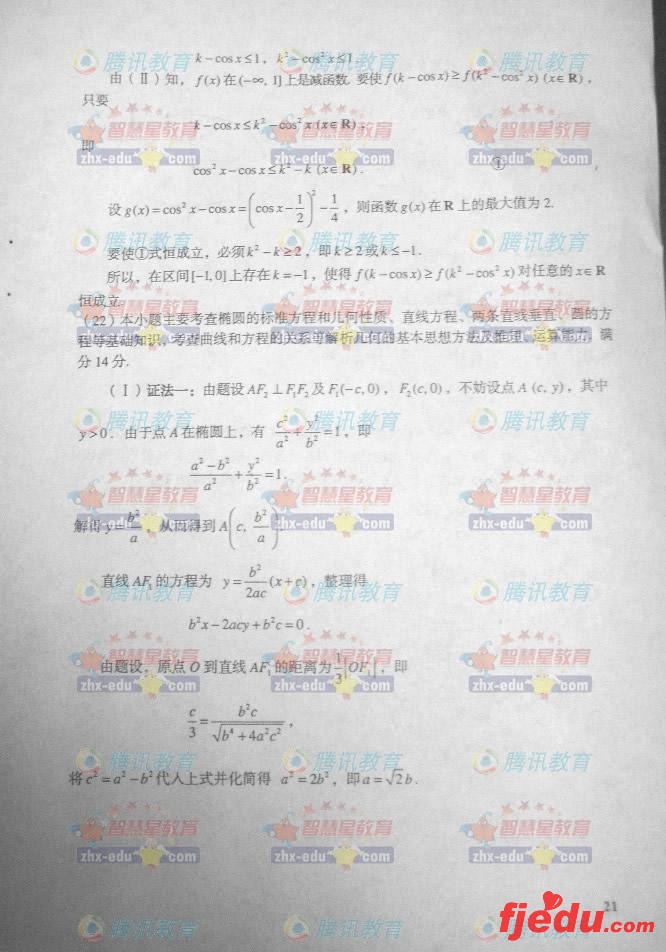 k-cosx≤1, k²-cos²x≤1.
由(Ⅱ)知, f(x)在(-∞, 1]上是减函数. 要使 f(k-cosx)≥f(k²-cos²x) (x∈R),
只要
k-cosx≤k²-cos²x (x∈R).
即
cos²x-cosx≤k²-k (x∈R). ①
设g(x)=cos²x-cosx=(cosx-1/2)²-1/4, 则函数g(x)在R上的最大值为2.
要使①式恒成立, 必须k²-k≥2, 即k≥2或k≤-1.
所以, 在区间[-1, 0]上存在k=-1, 使得f(k-cosx)≥f(k²-cos²x)对任意的x∈R
恒成立.
(22)本小题主要考查椭圆的标准方程和几何性质、直线方程、两条直线垂直、圆的方
程等基础知识, 考查曲线和方程的关系等解析几何的基本思想方法及推理、运算能力. 满
分14分.
(Ⅰ)证法一: 由题设AF₂⊥F₁F₂及F₁(-c, 0), F₂(c, 0), 不妨设点A (c, y), 其中
y>0. 由于点A在椭圆上, 有 c²/a²+y²/b²=1, 即
(a²-b²)/a²+y²/b²=1.
解得y=b²/a, 从而得到A(c, b²/a).
直线AF₁的方程为 y=b²/2ac(x+c), 整理得
b²x-2acy+b²c=0.
由题设, 原点O到直线AF₁的距离为1/3|OF₁|, 即
c/3=b²c/√(b⁴+4a²c²),
将c²=a²-b²代入上式并化简得 a²=2b², 即a=√2b.
21
腾讯教育
智慧星教育
zhx-edu com
fjedu.com